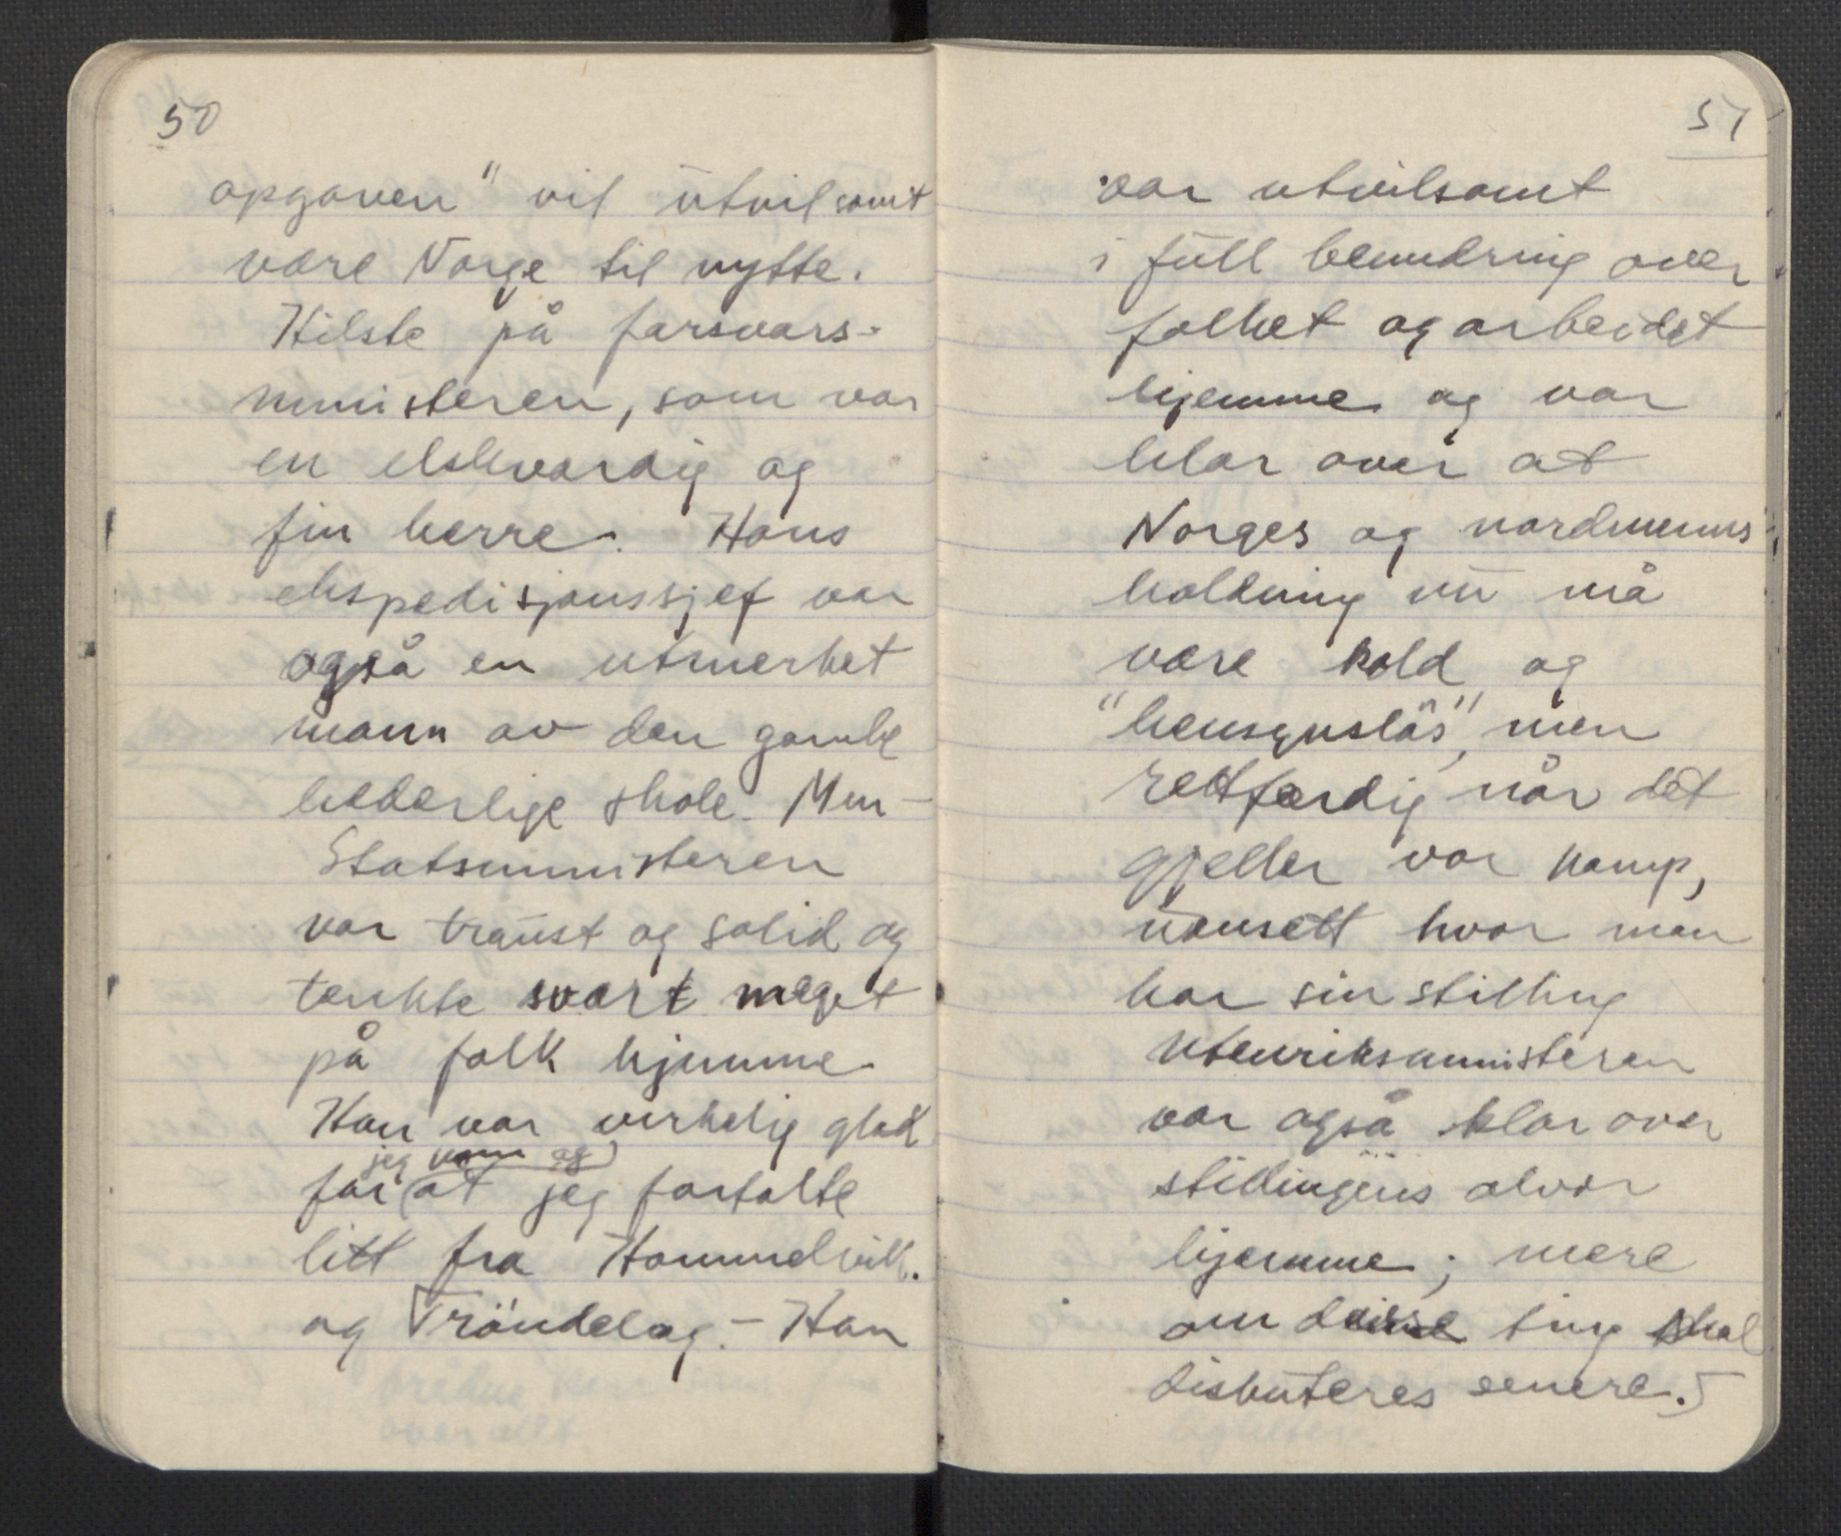 50
opgaven" vil utvilsomt
være Norge til nytte.
Hilste på forsvars-
ministeren, som var
en elskverdig og
fin herre. Hans
ekspedisjonssjef var
også en utmerket
mann av den gamle
hederlige skole. Men -
Statsministeren
var traust og solid og
tenkte svært meget
på folk hjemme.
Han var virkelig glad
jeg kom og
for at jeg fortalte
litt fra Hommelvik.
og Tröndelag. - Han
51
var utvilsomt
i full beundring over
folket og arbeidet
hjemme og var
klar over at
Norges og nordmenns
holdning nu må
være kold og
"hensynslös", men
rettferdig når det
gjeller vor kamp,
uansett hvor man
har sin stilling
Utenriksministeren
var også klar over
stillingens alvor
hjemme; mere
om disse ting skal
diskuteres senere.